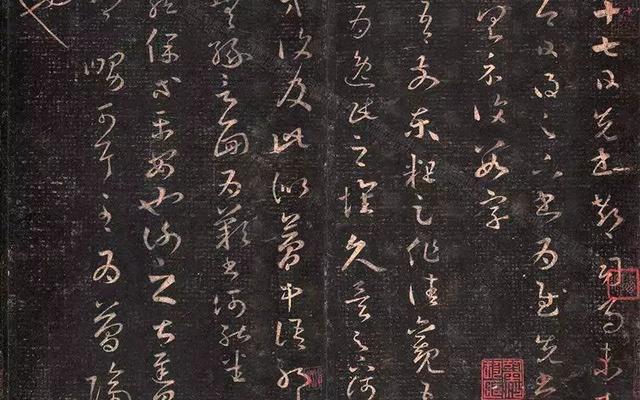 十七日先書郗司馬未
日得足下書為慰先書
具示復數字
吾前東粗足作佳觀吾
為逸民之懷久矣足下何
復及此似夢中語耶
無緣言面為歎書何能悉
龍保等平安也謝之甚遲見
舅可耳至為簡隔
也